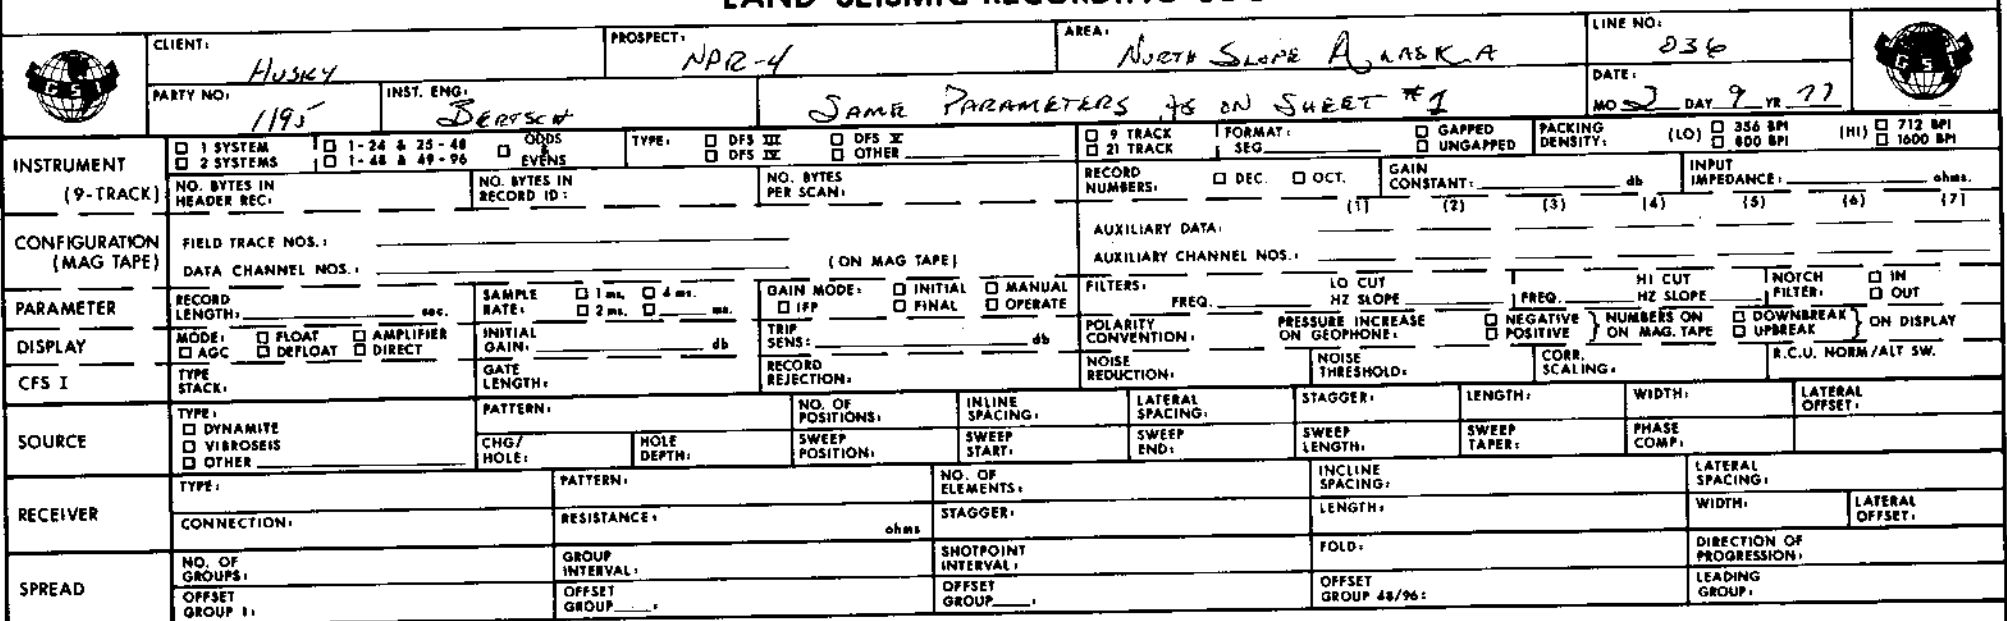 LAND SEISMIC RECORDING
GSI
CLIENT: HUSKY PROSPECT: NPR-4 AREA: NORTH SLOPE ALASKA LINE NO: 036
GSI
PARTY NO: 1195 INST. ENG: BERTSCH SAME PARAMETERS AS ON SHEET #1 DATE: MO 2 DAY 9 YR 77
INSTRUMENT (9-TRACK)
□ 1 SYSTEM □ 1-24 & 25-48 □ ODDS & EVENS TYPE: □ DFS III □ DFS V □ 9 TRACK FORMAT: □ GAPPED PACKING DENSITY: (LO) □ 356 BPI (HI) □ 712 BPI
□ 2 SYSTEMS □ 1-48 & 49-96 □ DFS IV □ OTHER □ 21 TRACK SEG □ UNGAPPED □ 800 BPI □ 1600 BPI
NO. BYTES IN HEADER REC: NO. BYTES IN RECORD ID: NO. BYTES PER SCAN: RECORD NUMBERS: □ DEC. □ OCT. GAIN CONSTANT: db INPUT IMPEDANCE: ohms.
CONFIGURATION (MAG TAPE)
(1) (2) (3) (4) (5) (6) (7)
FIELD TRACE NOS.: AUXILIARY DATA:
DATA CHANNEL NOS.: (ON MAG TAPE) AUXILIARY CHANNEL NOS.:
PARAMETER RECORD LENGTH: sec. SAMPLE RATE: □ 1 ms. □ 4 ms. □ 2 ms. □ ms. GAIN MODE: □ INITIAL □ MANUAL □ IFP □ FINAL □ OPERATE FILTERS: LO CUT FREQ. HZ SLOPE HI CUT FREQ. HZ SLOPE NOTCH FILTER: □ IN □ OUT
DISPLAY MODE: □ FLOAT □ AMPLIFIER □ AGC □ DEFLOAT □ DIRECT INITIAL GAIN: db TRIP SENS: db POLARITY CONVENTION: PRESSURE INCREASE ON GEOPHONE: □ NEGATIVE □ POSITIVE } NUMBERS ON ON MAG. TAPE □ DOWNBREAK □ UPBREAK } ON DISPLAY
CFS I TYPE STACK: GATE LENGTH: RECORD REJECTION: NOISE REDUCTION: NOISE THRESHOLD: CORR. SCALING: R.C.U. NORM/ALT SW.
SOURCE TYPE: □ DYNAMITE □ VIBROSEIS □ OTHER
PATTERN: NO. OF POSITIONS: INLINE SPACING: LATERAL SPACING: STAGGER: LENGTH: WIDTH: LATERAL OFFSET:
CHG/HOLE: HOLE DEPTH: SWEEP POSITION: SWEEP START: SWEEP END: SWEEP LENGTH: SWEEP TAPER: PHASE COMP:
RECEIVER TYPE: PATTERN: NO. OF ELEMENTS: INCLINE SPACING: LATERAL SPACING:
CONNECTION: RESISTANCE: ohms STAGGER: LENGTH: WIDTH: LATERAL OFFSET:
SPREAD NO. OF GROUPS: GROUP INTERVAL: SHOTPOINT INTERVAL: FOLD: DIRECTION OF PROGRESSION:
OFFSET GROUP 1: OFFSET GROUP : OFFSET GROUP : OFFSET GROUP 48/96: LEADING GROUP: